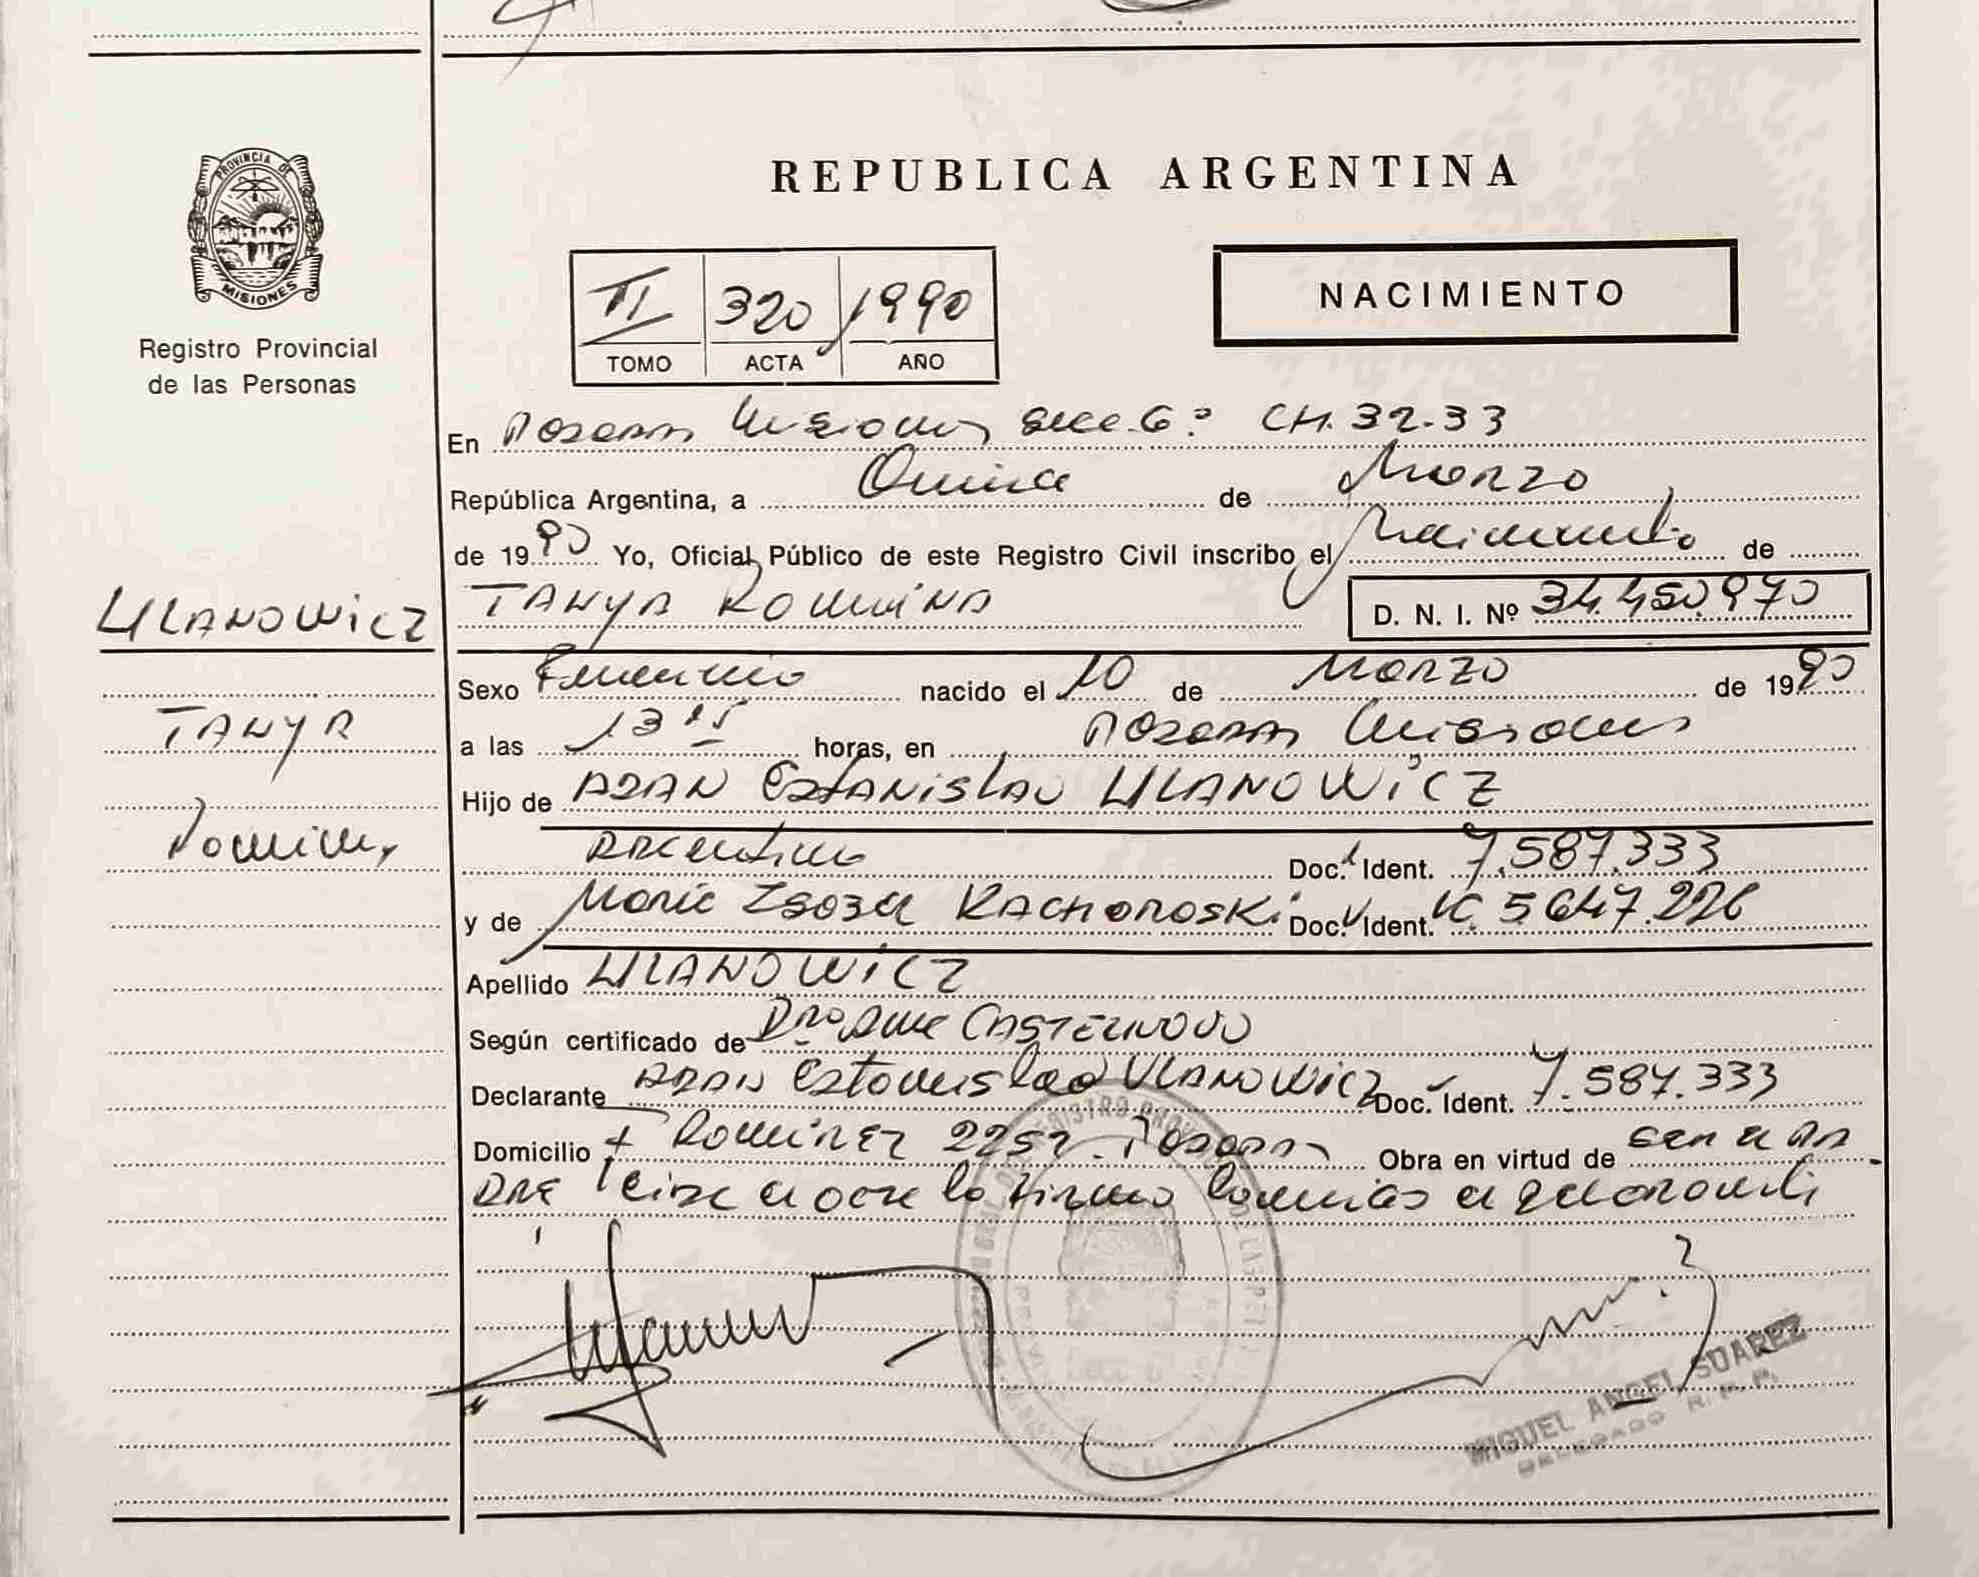 PROVINCIA DE
MISIONES
Registro Provincial
de las Personas
REPUBLICA ARGENTINA
II 320 1990
TOMO ACTA AÑO
NACIMIENTO
En Posadas Misiones Secc. 6º CH. 32-33
República Argentina, a Quince de Marzo
de 1990 Yo, Oficial Público de este Registro Civil inscribo el Nacimiento de
ULANOWICZ
TANYA
Romina
TANYA ROMINA D. N. I. Nº 34.450.970
Sexo Femenino nacido el 10 de Marzo de 1990
a las 13 15 horas, en Posadas Misiones
Hijo de ADAN EStANiSLAO ULANOWiCZ
Argentino Doc. Ident. 7.587.333
y de Maria Isabel KACHOROSKi Doc. Ident. 5.647.226
Apellido ULANOWiCZ
Según certificado de CASTELNOVO
Declarante ADAN Estanislao ULANOWiCZ Doc. Ident. 7.587.333
Domicilio RAMIREZ 2252 Posadas Obra en virtud de ser el PA
DRE leida el acta la firma conmigo el declarante
MIGUEL ANGEL SUAREZ
DELEGADO R. P. P.